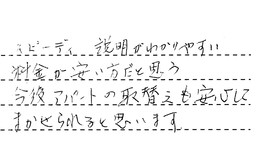 スピーディ　説明がわかりやすい
料金が安い方だと思う
今後アパートの取替えも安心して
まかせられると思います